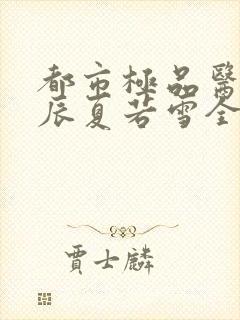 都市極品醫
辰夏若雪全
賈士麟